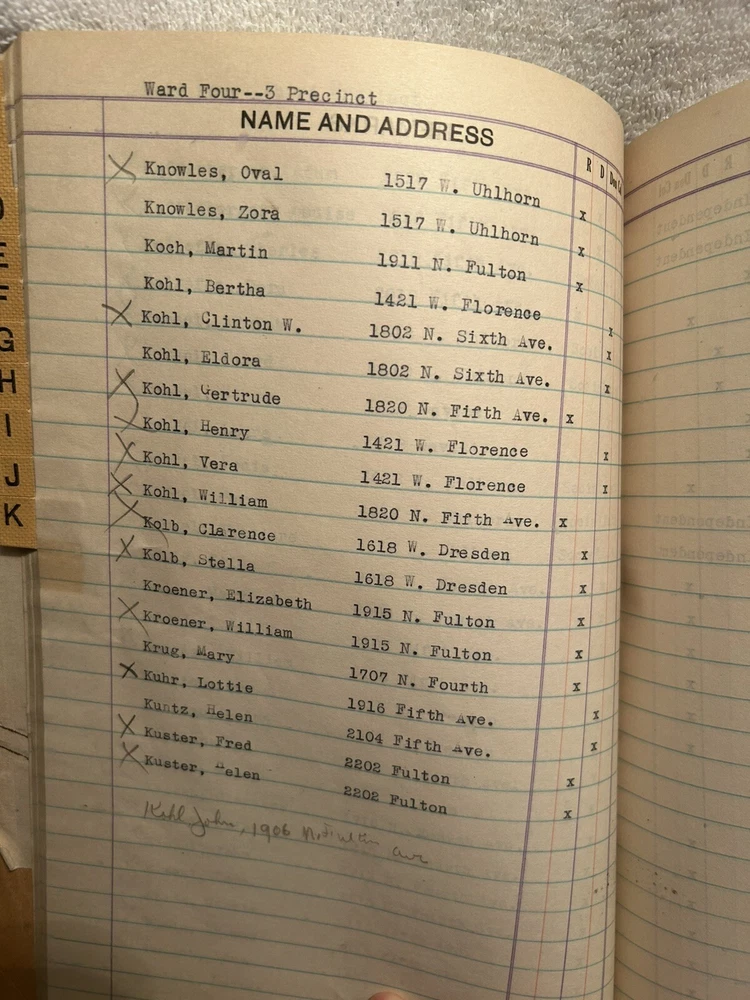 Ward Four--3 Precinct
NAME AND ADDRESS R D
X Knowles, Oval 1517 W. Uhlhorn x
Knowles, Zora 1517 W. Uhlhorn x
Koch, Martin 1911 N. Fulton x
Kohl, Bertha 1421 W. Florence x
X Kohl, Clinton W. 1802 N. Sixth Ave. x
Kohl, Eldora 1802 N. Sixth Ave. x
X Kohl, Gertrude 1820 N. Fifth Ave. x
X Kohl, Henry 1421 W. Florence x
X Kohl, Vera 1421 W. Florence x
X Kohl, William 1820 N. Fifth Ave. x
X Kolb, Clarence 1618 W. Dresden x
X Kolb, Stella 1618 W. Dresden x
Kroener, Elizabeth 1915 N. Fulton x
X Kroener, William 1915 N. Fulton x
Krug, Mary 1707 N. Fourth x
X Kuhr, Lottie 1916 Fifth Ave. x
Kuntz, Helen 2104 Fifth Ave. x
X Kuster, Fred 2202 Fulton x
X Kuster, Helen 2202 Fulton x
Kohl John, 1906 N. Fulton Ave
G
H
I
J
K